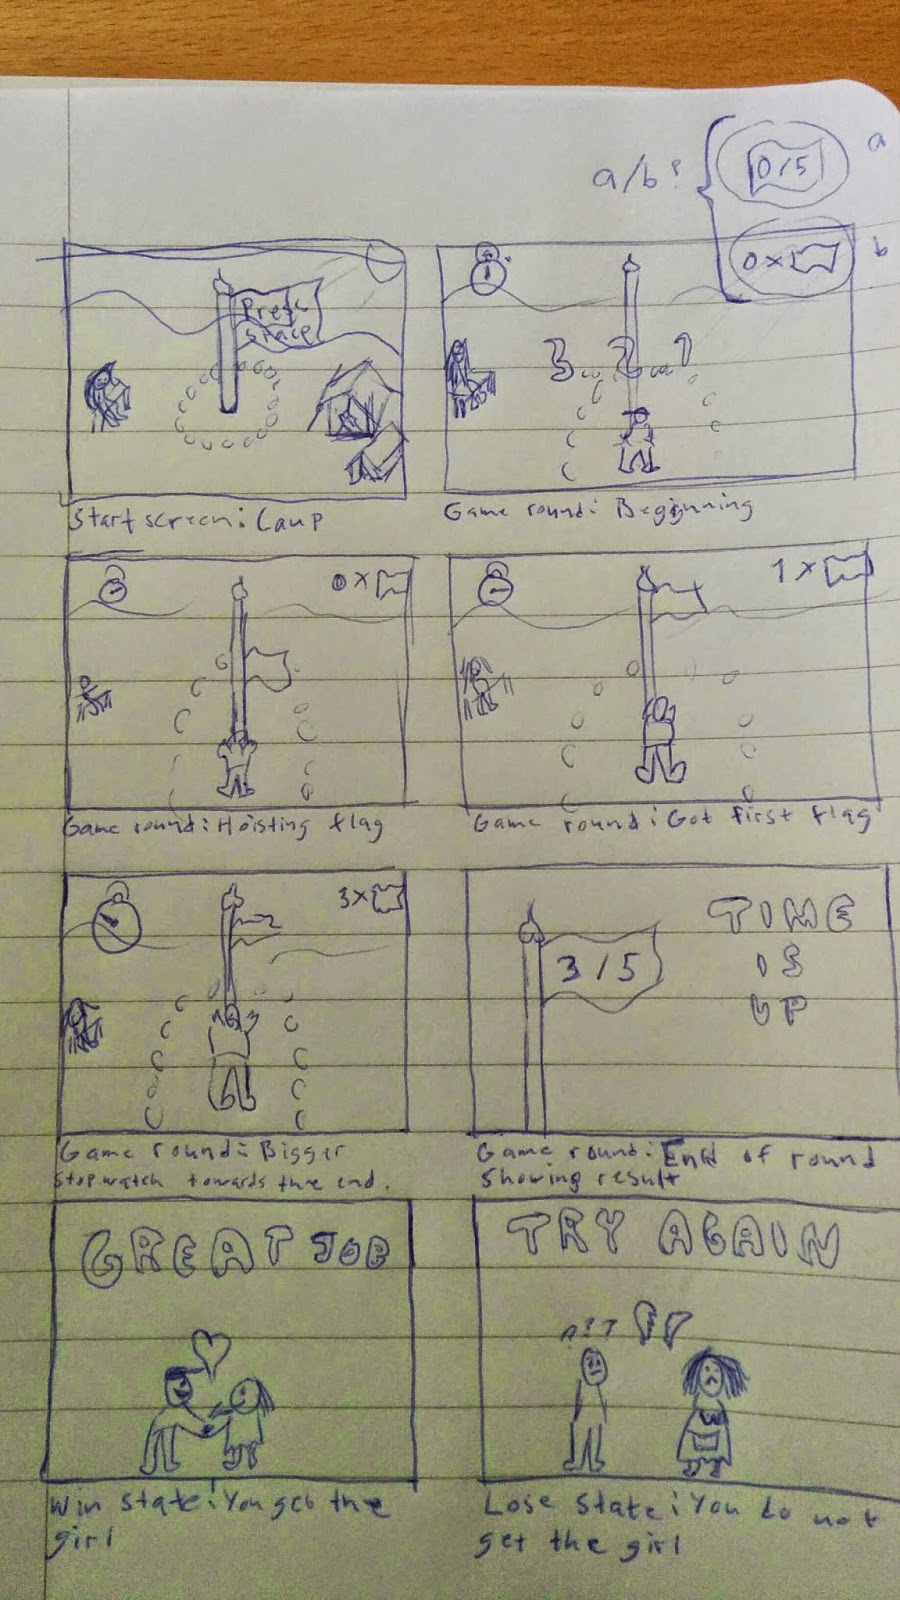 a/b?
0/5
a
0 x
b
Press
space
Start screen: Camp
3..2..1
Game round: Beginning
0 x
Game round: Hoisting flag
1 x
Game round: Got first flag
3 x
Game round: Bigger
stopwatch towards the end.
3/5
TIME
IS
UP
Game round: End of round
showing result
GREAT JOB
Win state: You get the
girl
TRY AGAIN
Lose state: You do not
get the girl